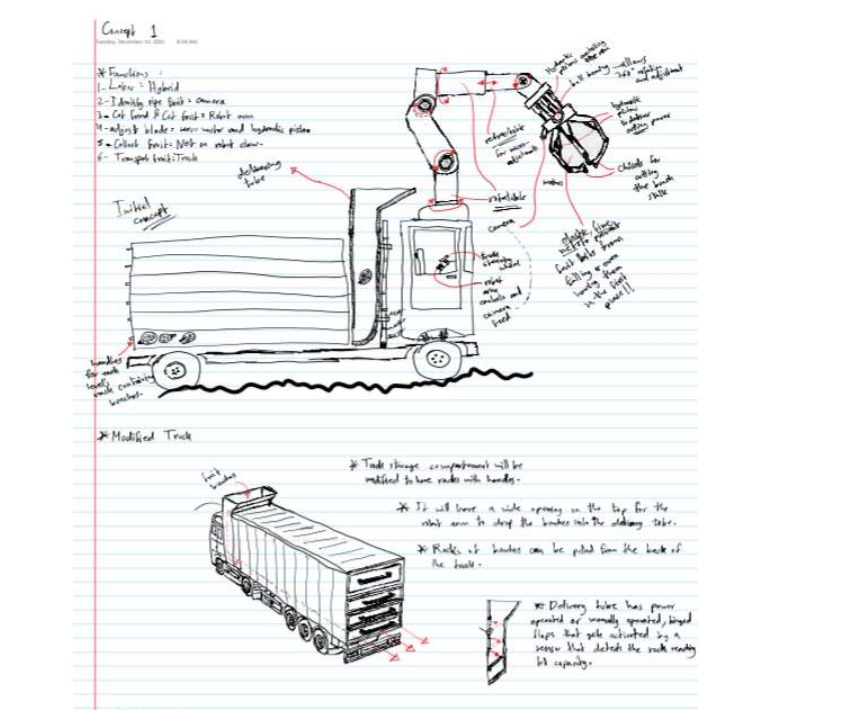 Concept 1
Tuesday, December 14, 2021
8:58 AM
* Functions :
1- Labor = Hybrid
2- Identify ripe fruit = camera
3- Cut frond & Cut fruit = Robot arm
4- adjust blade = servo motor and hydraulic piston
5- Collect fruit = Net on robot claw.
6- Transport fruit: Truck
Initial
concept
delivering
tube
Hydraulic
pistons controlling
ball bearing allows
360° rotation
and adjustment
hydraulic
pistons
to deliver
cutting power
chisels for
cutting
the bunch
stalk
retractable
for micro-
adjustments
rotatable
camera
fruit bunches from
falling or even
in the first
place!!
truck
steering
wheel
robot
arm
controls and
camera
feed
handles
for each
level's
rack containing
bunches.
* Modified Truck
fruit
bunches
* Truck storage compartment will be
modified to have racks with handles.
* It will have a wide opening on the top for the
robot arm to drop the bunches into the delivery tube.
* Racks of bunches can be pulled from the back of
the truck.
* Delivery tube has power
operated or manually operated, hinged
flaps that gets activated by a
sensor that detects the rack reaching
its capacity.